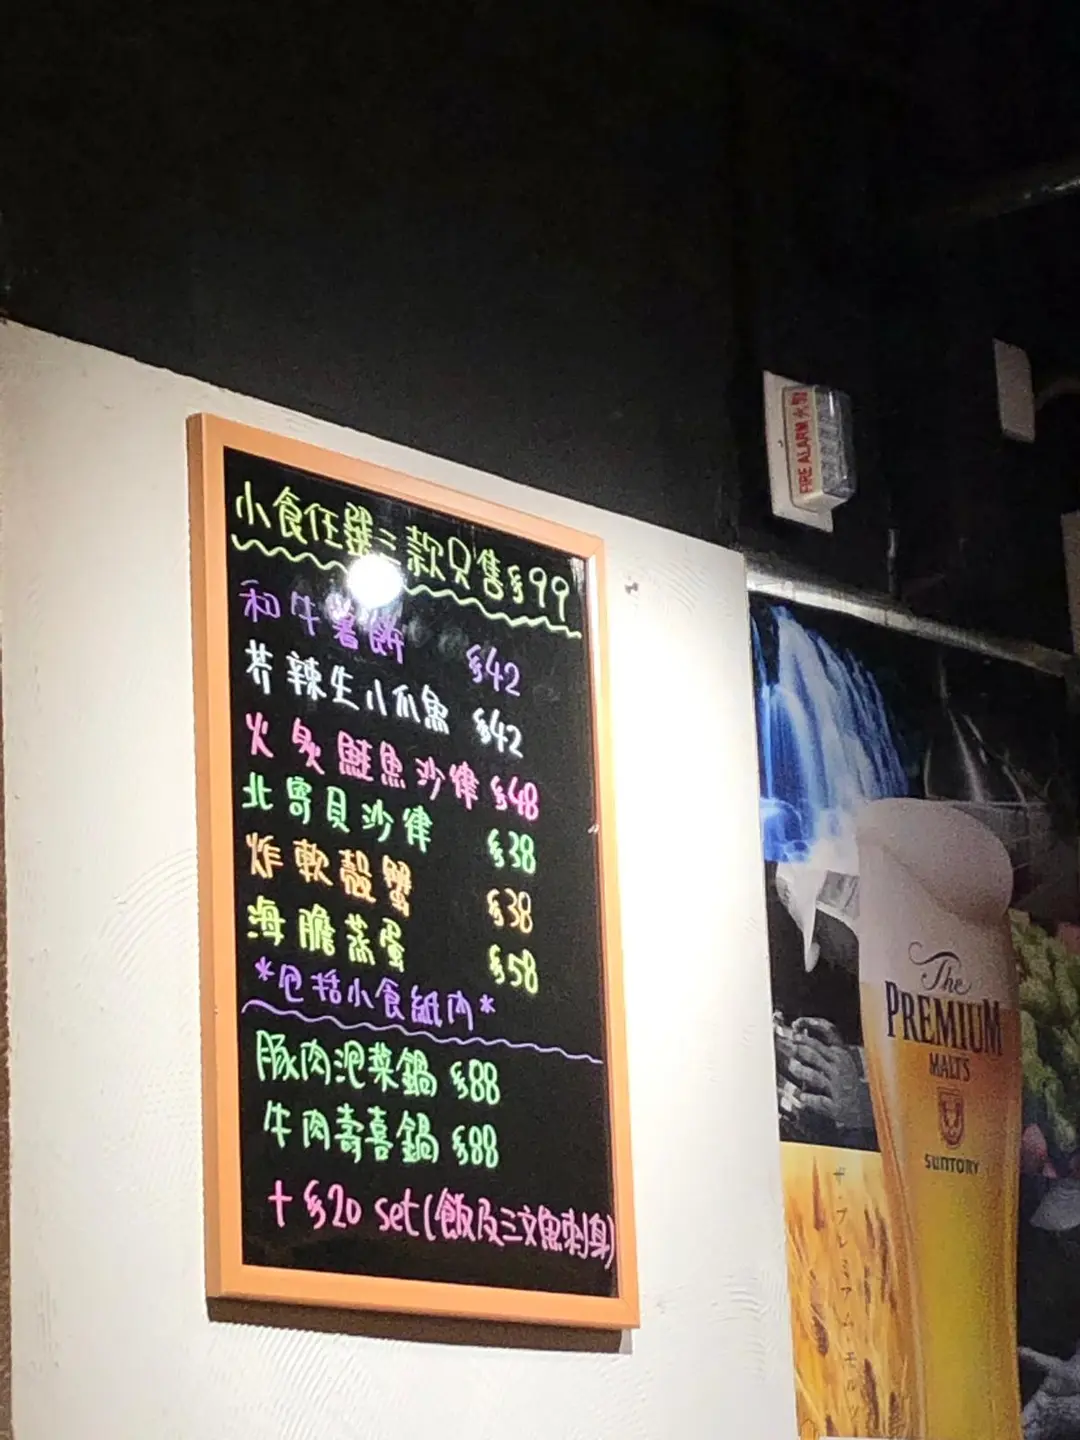 小食任選三款只售$99
和牛薯餅 $42
芥辣生八爪魚 $42
火炙鮭魚沙律 $48
北寄貝沙律 $38
炸軟殼蟹 $38
海膽蒸蛋 $58
*包括小食紙內*
豚肉泡菜鍋 $88
牛肉壽喜鍋 $88
+$20 set(飯及三文魚刺身)
FIRE ALARM 火警
The
PREMIUM
MALT'S
SUNTORY
ザ・プレミアム・モルツ